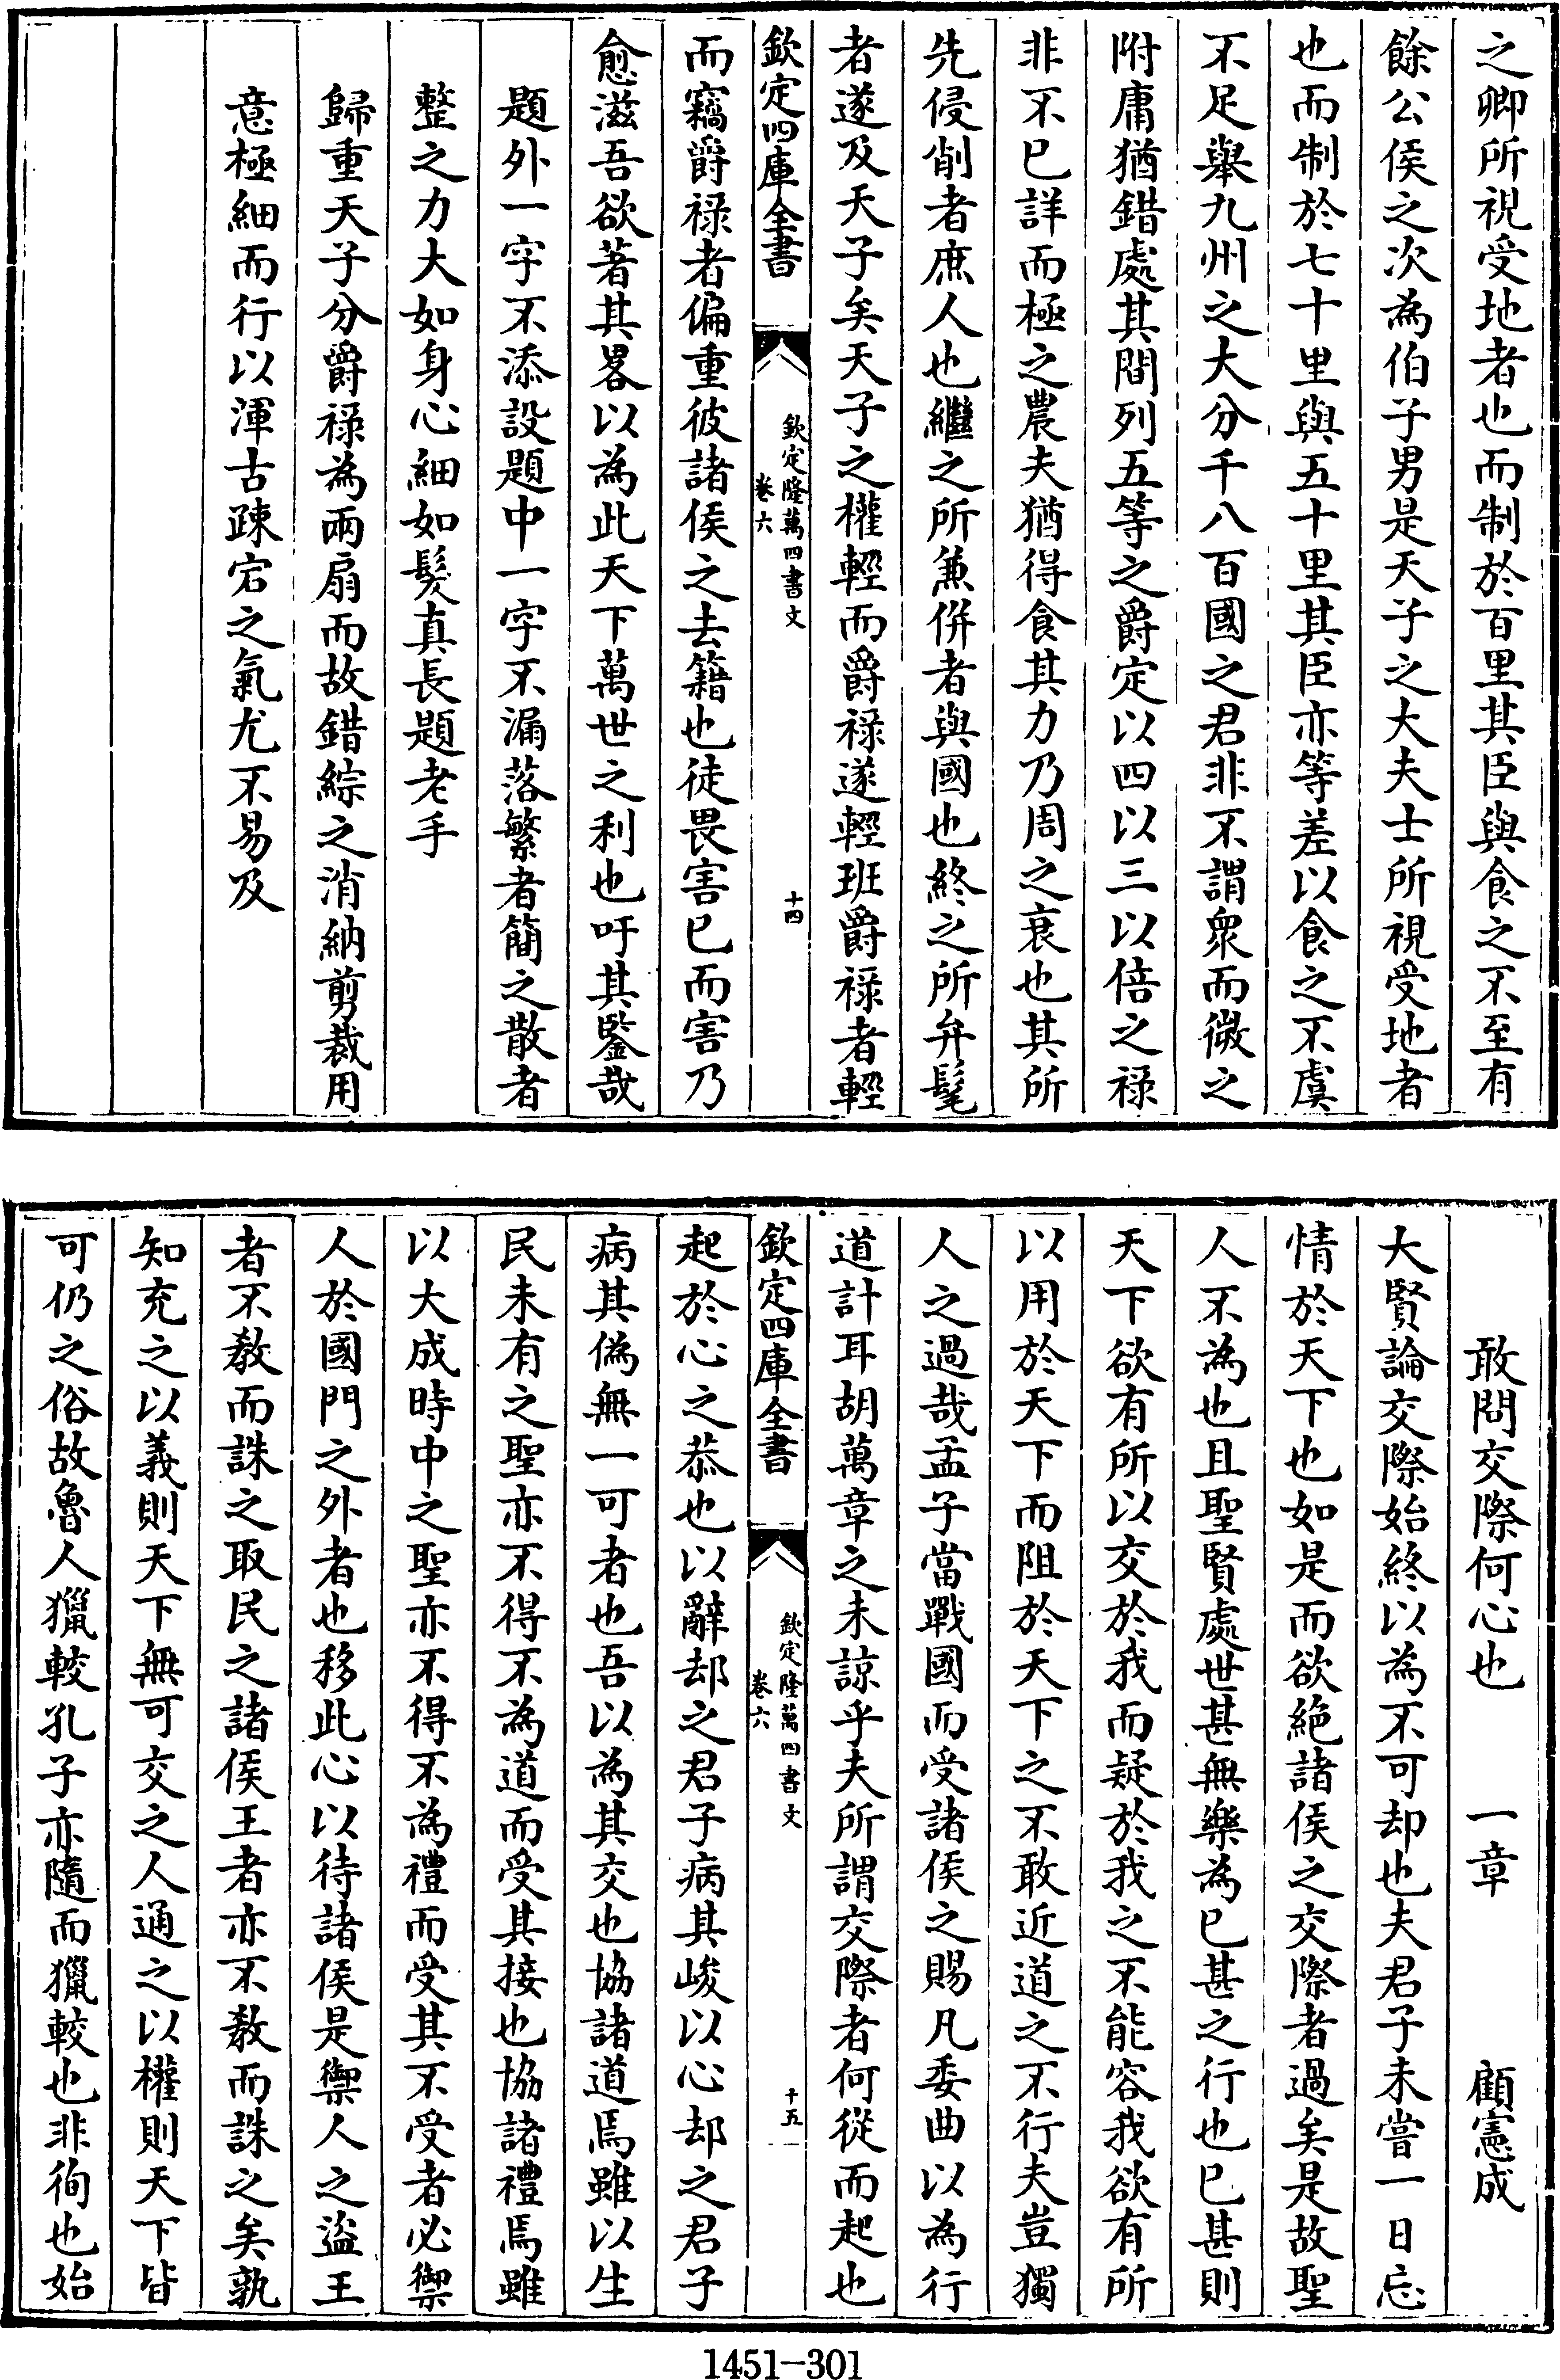 之卿所視受地者也而制於百里其臣與食之不至有
餘公侯之次為伯子男是天子之大夫士所視受地者
也而制於七十里與五十里其臣亦等差以食之不虞
不足舉九州之大分千八百國之君非不謂衆而微之
附庸猶錯處其間列五等之爵定以四以三以倍之祿
非不已詳而極之農夫猶得食其力乃周之衰也其所
先侵削者庶人也繼之所兼併者與國也終之所弁髦
者遂及天子矣天子之權輕而爵祿遂輕班爵祿者輕
欽定四庫全書
欽定隆萬四書文
卷六
十四
而竊爵祿者偏重彼諸侯之去籍也徒畏害已而害乃
愈滋吾欲著其畧以為此天下萬世之利也吁其鑒哉
題外一字不添設題中一字不漏落繁者簡之散者
整之力大如身心細如髮真長題老手
歸重天子分爵祿為兩扇而故錯綜之消納剪裁用
意極細而行以渾古踈宕之氣尤不易及
敢問交際何心也 一章 顧憲成
大賢論交際始終以為不可却也夫君子未嘗一日忘
情於天下也如是而欲絕諸侯之交際者過矣是故聖
人不為也且聖賢處世甚無樂為已甚之行也已甚則
天下欲有所以交於我而疑於我之不能容我欲有所
以用於天下而阻於天下之不敢近道之不行夫豈獨
人之過哉孟子當戰國而受諸侯之賜凡委曲以為行
道計耳胡萬章之未諒乎夫所謂交際者何從而起也
欽定四庫全書
欽定隆萬四書文
卷六
十五
起於心之恭也以辭却之君子病其峻以心却之君子
病其偽無一可者也吾以為其交也協諸道焉雖以生
民未有之聖亦不得不為道而受其接也協諸禮焉雖
以大成時中之聖亦不得不為禮而受其不受者必禦
人於國門之外者也移此心以待諸侯是禦人之盜王
者不教而誅之取民之諸侯王者亦不教而誅之矣孰
知充之以義則天下無可交之人通之以權則天下皆
可仍之俗故魯人獵較孔子亦隨而獵較也非徇也始
1451-301